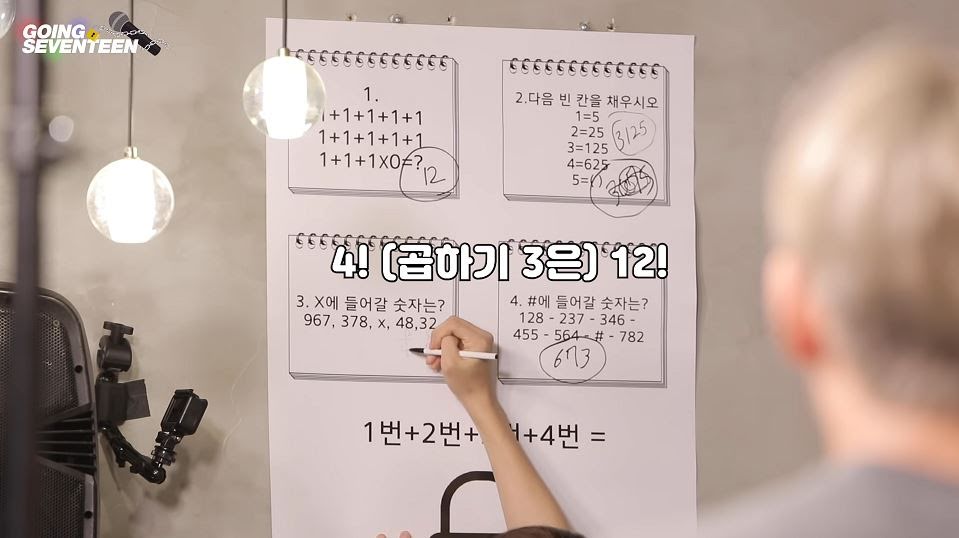 GOING
SEVENTEEN
1.
1+1+1+1+1
1+1+1+1+1
1+1+1X0=?
12
2.다음 빈 칸을 채우시오
1=5
2=25
3=125
4=625
5=( )
3125
4! (곱하기 3은) 12!
3. X에 들어갈 숫자는?
967, 378, x, 48,32
4. #에 들어갈 숫자는?
128 - 237 - 346 -
455 - 564 - # - 782
673
1번+2번+ 번+4번 =